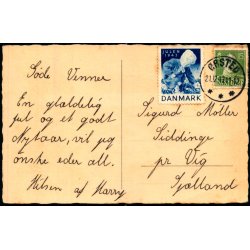 JULEN
DANMARK
ØRSTED
Søde Venner
En glædelig
jul og et godt
Nytaar, vil jeg
ønske eder all.
Hilsen af Harry
Sigurd Møller
Siddinge
pr Vig
Sjælland